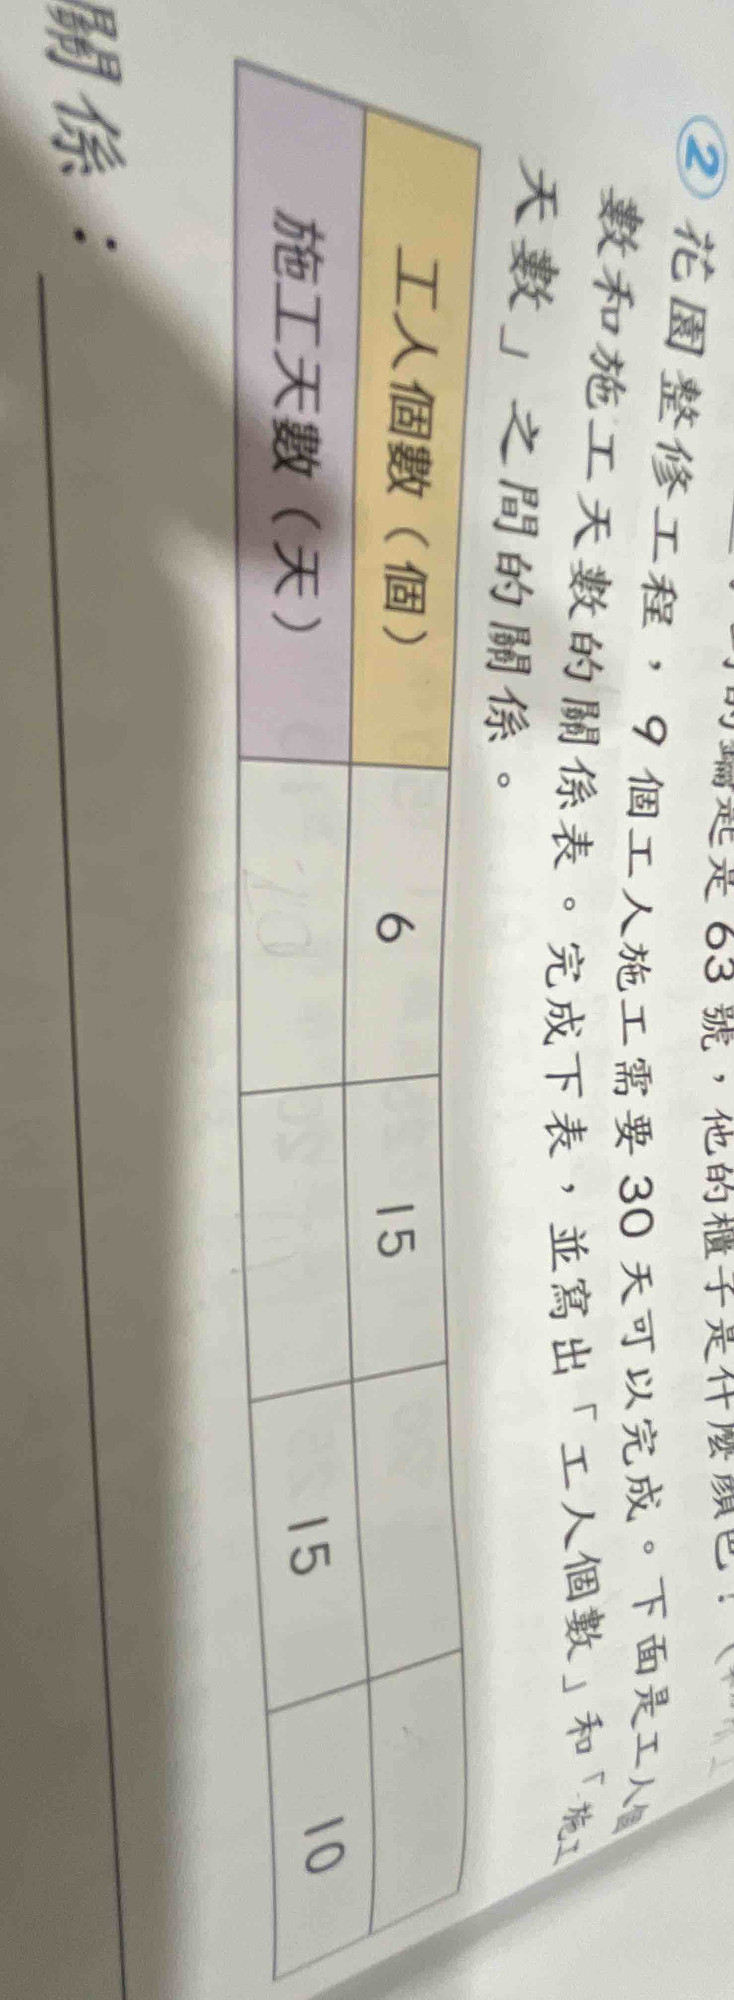 的鑰匙是63號，他的櫃子是什麼顏色？
② 花園整修工程，9個工人施工需要30天可以完成。下面是工人個
數和施工天數的關係表。完成下表，並寫出「工人個數」和「施工
天數」之間的關係。
工人個數（個） 6 15
施工天數（天） 15 10
關係：